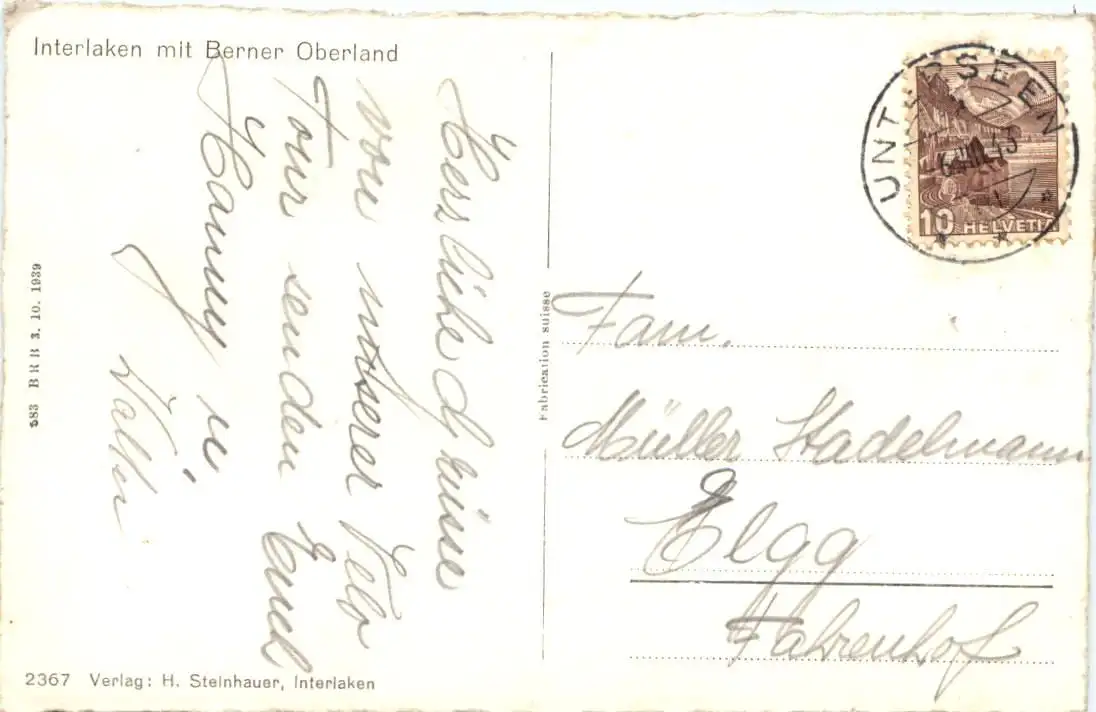 Interlaken mit Berner Oberland
Herzliche Grüsse
von unserer Velo
Tour senden Euch
Hanny u
UNTERSEEN
10 HELVETIA
Fam.
Müller Stadelmann
Elgg
Fahrenhof
Fabrication suisse
BRB 3. 10. 1939
2367 Verlag: H. Steinhauer, Interlaken